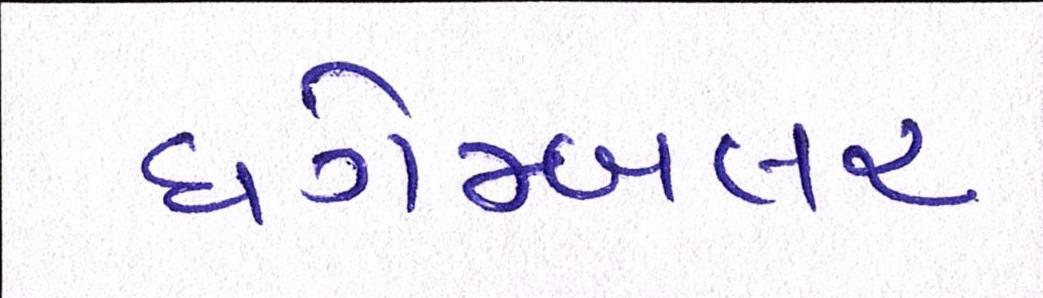 ધગેમ્બલર